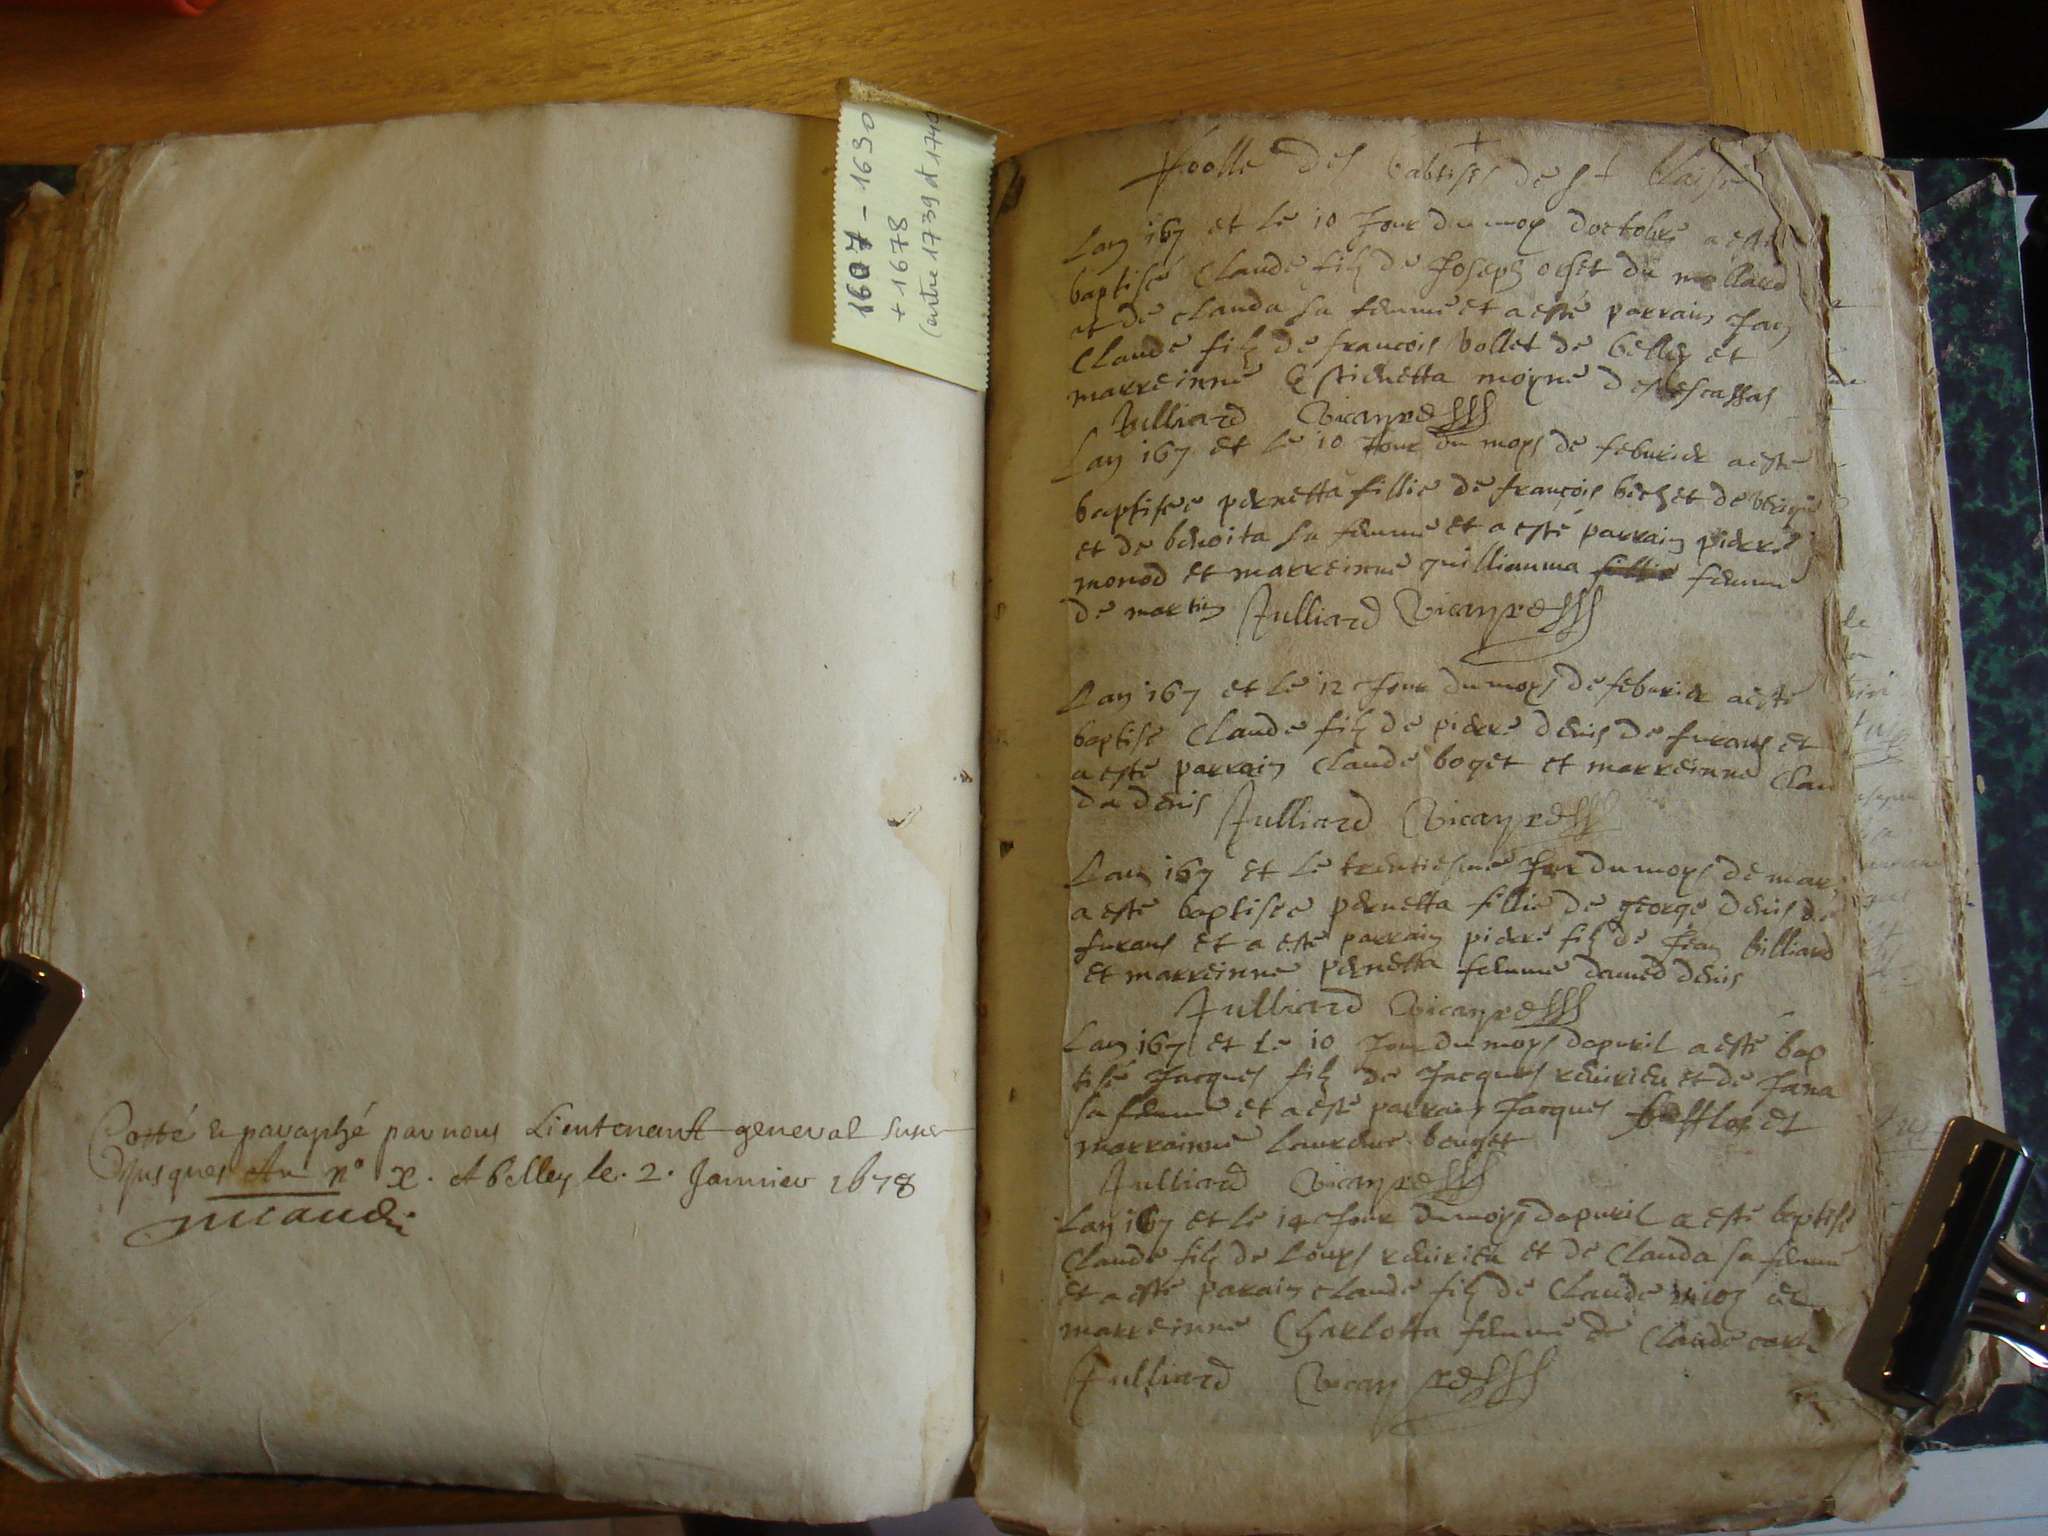 1607 - 1630
+ 1678
(entre 1739 et 1740
Cotté & paraphé par nous Lieutenant general
jusques Au n° x. A belley le. 2. Janvier 1678
Roolle des babtises de st blaise
Lan 167 et le 10 Jour du moys doctobre a esté
baptisé Claude filz de Joseph ochet du mollard
et de clauda sa femme et a esté parrain Jan
Claude filz de francois bollet de belley et
marreinne Estienetta moyne des escassas
Julliard Vicayre
Lan 167 et le 10 Jour du moys de feburier a esté
baptisee pernetta fillie de françois bechet de
et de benoita sa femme et a esté parrain pierre
monod et marreinne guillianma fillie femme
de martin Julliard Vicayre
Lan 167 et le 12 Jour du moys de feburier a esté
baptisé Claude filz de pierre denis de furans et
a esté parrain Claude boget et marreinne Clau
da denis Julliard Vicayre
Lan 167 et le trentiesme Jour du moys de mars
a esté baptisee pernetta fillie de george denis de
furans et a esté parrain pierre filz de Jean billiard
et marreinne pernetta femme damed denis
Julliard Vicayre
Lan 167 et le 10 Jour du moys dapuril a esté bap
tisé Jacques filz de Jacques reuirieu et de Jana
sa femme et a esté parrain Jacques et
marrainne Laurence bouget
Julliard Vicayre
Lan 167 et le 14 Jour du moys dapuril a esté baptisé
Claude filz de Louys reuirieu et de Clauda sa femme
et a esté parain claude filz de Claude et
marreinne Charlotta femme de Claude
Julliard Vicayre